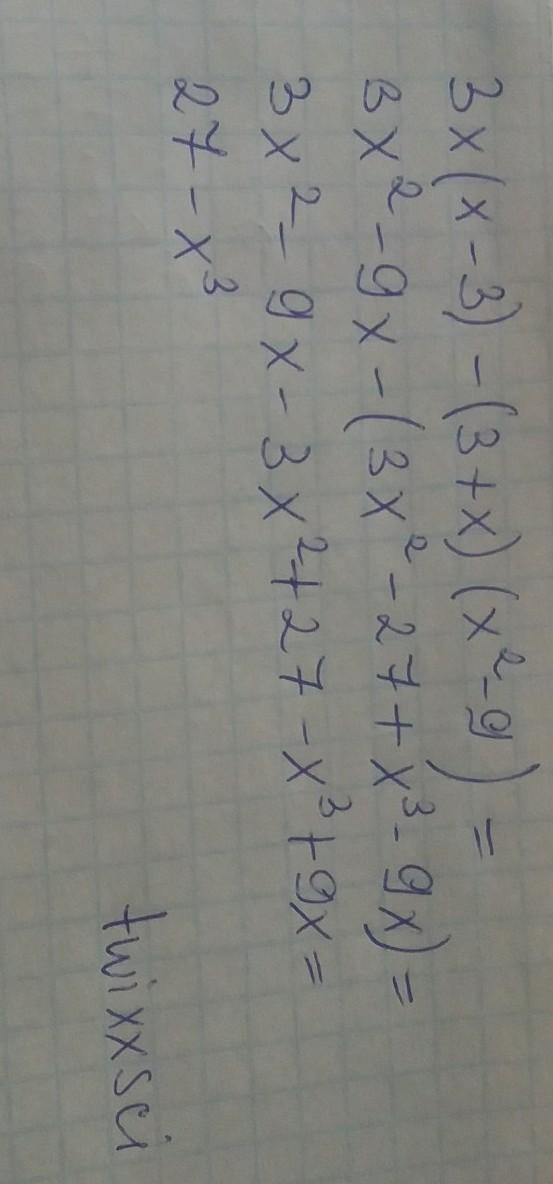 3x(x-3)-(3+x)(x²-9)=
3x²-9x-(3x²-27+x³-9x)=
3x²-9x-3x²+27-x³+9x=
27-x³
twixxsci